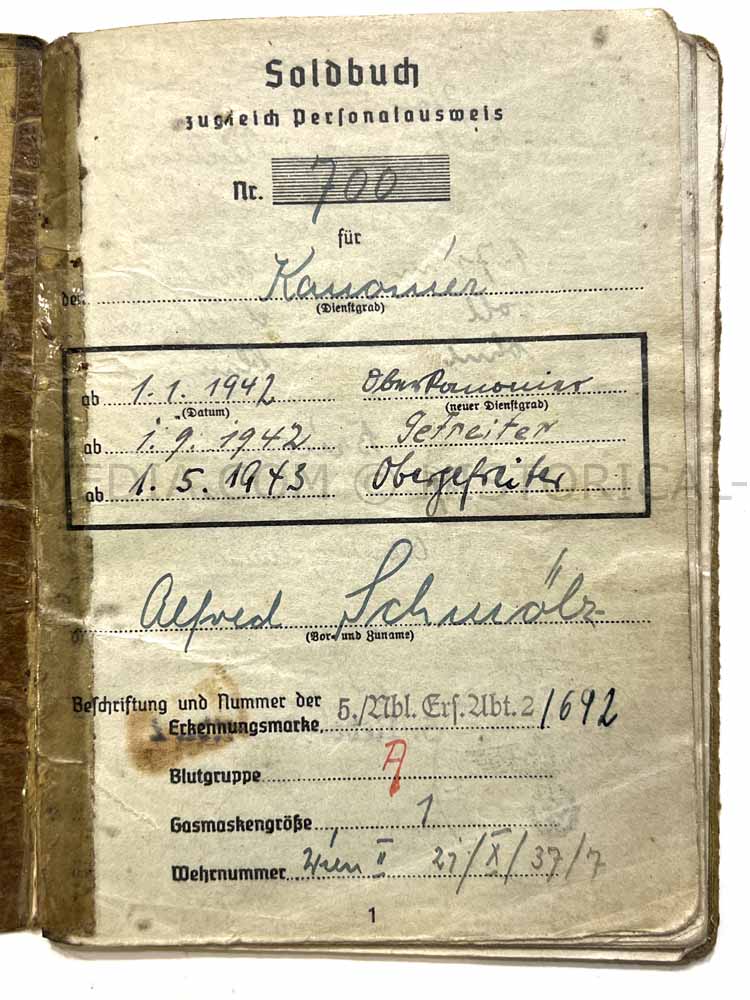 Soldbuch
zugleich Personalausweis
Nr. 700
für
den Kanonier
(Dienstgrad)
ab 1.1.1942 Oberkanonier
(Datum) (neuer Dienstgrad)
ab 1.9.1942 Gefreiter
ab 1.5.1943 Obergefreiter
Alfred Schmölz
(Vor- und Zuname)
Beschriftung und Nummer der
Erkennungsmarke 5./Nbl. Ers. Abt. 2/692
Blutgruppe A
Gasmaskengröße 1
Wehrnummer Wien II 21/X/37/7
1